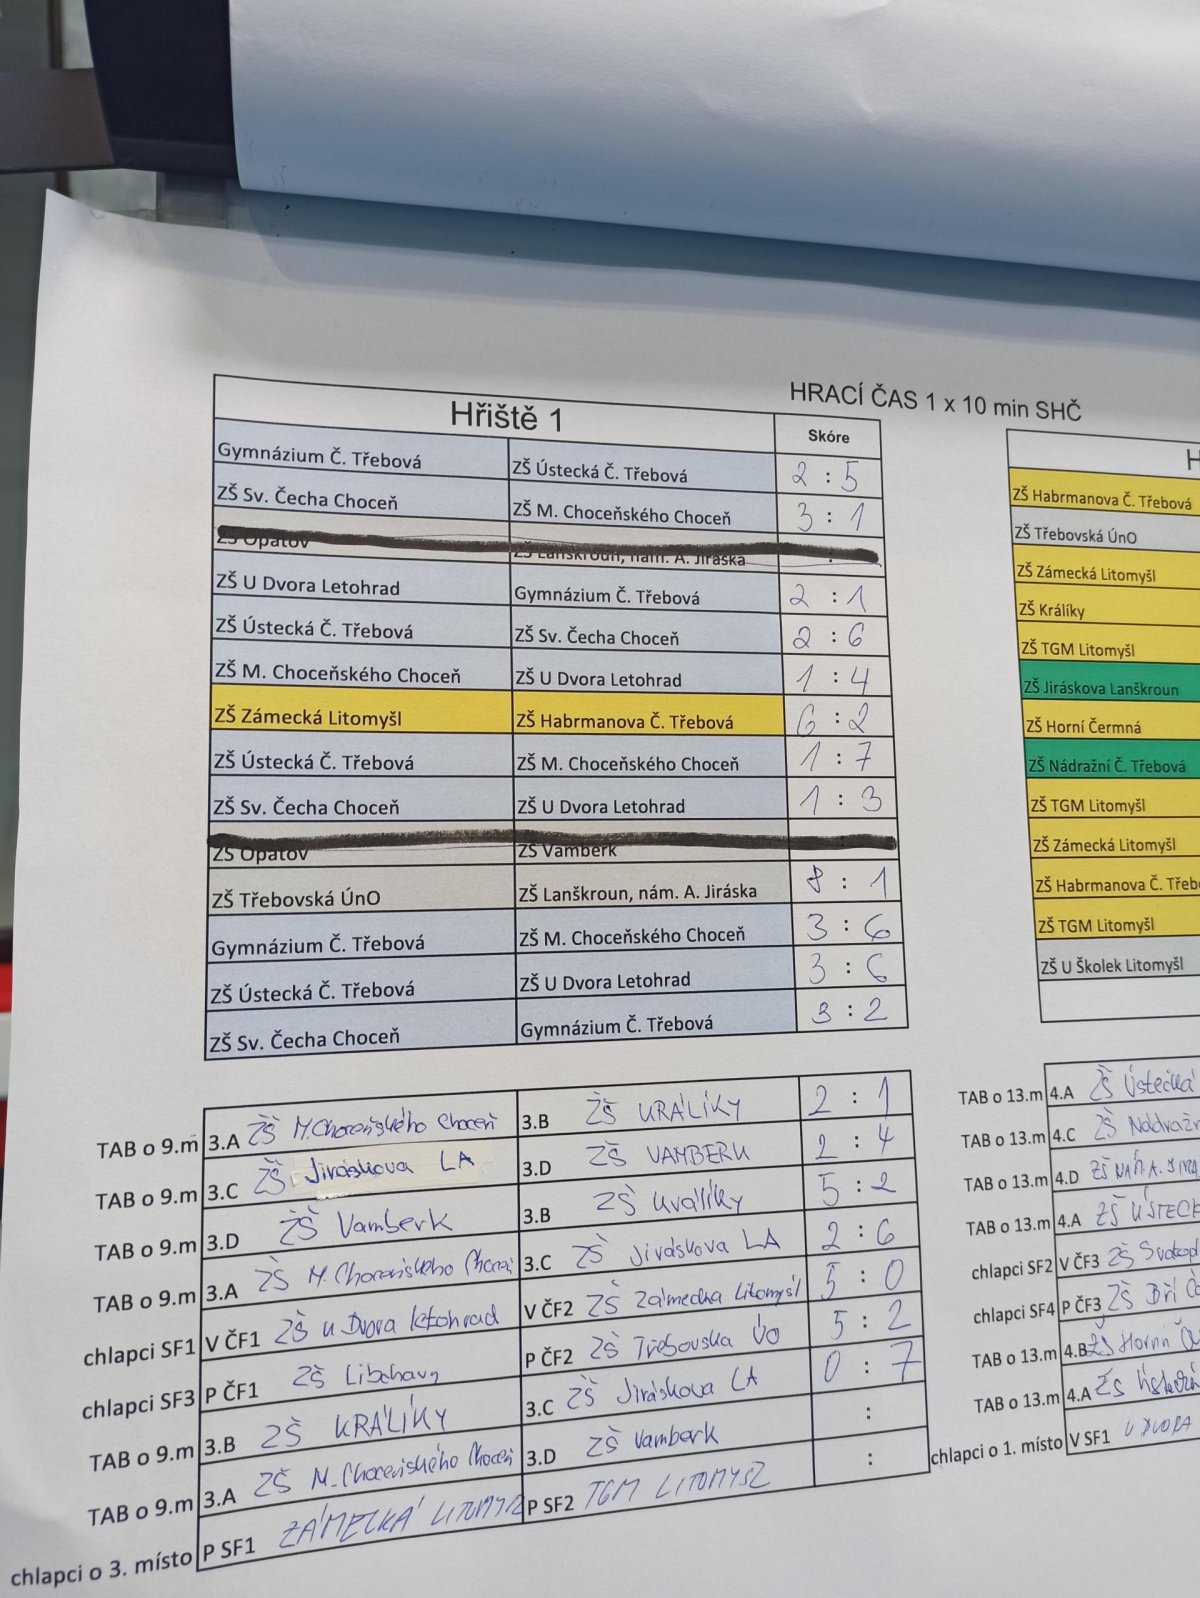 HRACÍ ČAS 1 x 10 min SHČ
Hřiště 1 Skóre
Gymnázium Č. Třebová ZŠ Ústecká Č. Třebová 2 : 5
ZŠ Sv. Čecha Choceň ZŠ M. Choceňského Choceň 3 : 1
ZŠ Opatov ZŠ Lanškroun, nám. A. Jiráska :
ZŠ U Dvora Letohrad Gymnázium Č. Třebová 2 : 1
ZŠ Ústecká Č. Třebová ZŠ Sv. Čecha Choceň 2 : 6
ZŠ M. Choceňského Choceň ZŠ U Dvora Letohrad 1 : 4
ZŠ Zámecká Litomyšl ZŠ Habrmanova Č. Třebová 6 : 2
ZŠ Ústecká Č. Třebová ZŠ M. Choceňského Choceň 1 : 7
ZŠ Sv. Čecha Choceň ZŠ U Dvora Letohrad 1 : 3
ZŠ Opatov ZŠ Vamberk
ZŠ Třebovská ÚnO ZŠ Lanškroun, nám. A. Jiráska 8 : 1
Gymnázium Č. Třebová ZŠ M. Choceňského Choceň 3 : 6
ZŠ Ústecká Č. Třebová ZŠ U Dvora Letohrad 3 : 6
ZŠ Sv. Čecha Choceň Gymnázium Č. Třebová 3 : 2
TAB o 9.m 3.A ZŠ M.Choceňského Choceň 3.B ZŠ KRÁLÍKY 2 : 1
TAB o 9.m 3.C ZŠ Jiráskova LA 3.D ZŠ VAMBERK 2 : 4
TAB o 9.m 3.D ZŠ Vamberk 3.B ZŠ Králíky 5 : 2
TAB o 9.m 3.A ZŠ M. Choceňského Choceň 3.C ZŠ Jiráskova LA 2 : 6
chlapci SF1 V ČF1 ZŠ U Dvora Letohrad V ČF2 ZŠ Zámecká Litomyšl 5 : 0
chlapci SF3 P ČF1 ZŠ Libchavy P ČF2 ZŠ Třebovská ÚO 5 : 2
TAB o 9.m 3.B ZŠ KRÁLÍKY 3.C ZŠ Jiráskova LA 0 : 7
TAB o 9.m 3.A ZŠ M. Choceňského Choceň 3.D ZŠ Vamberk :
chlapci o 3. místo P SF1 ZÁMECKÁ LITOMYŠL P SF2 TGM LITOMYŠL :
H
ZŠ Habrmanova Č. Třebová
ZŠ Třebovská ÚnO
ZŠ Zámecká Litomyšl
ZŠ Králíky
ZŠ TGM Litomyšl
ZŠ Jiráskova Lanškroun
ZŠ Horní Čermná
ZŠ Nádražní Č. Třebová
ZŠ TGM Litomyšl
ZŠ Zámecká Litomyšl
ZŠ Habrmanova Č. Třebo
ZŠ TGM Litomyšl
ZŠ U Školek Litomyšl
TAB o 13.m 4.A ZŠ Ústecká
TAB o 13.m 4.C ZŠ Nádražn
TAB o 13.m 4.D ZŠ NÁM. A. JIRÁ
TAB o 13.m 4.A ZŠ ÚSTECK
chlapci SF2 V ČF3 ZŠ Svatopl
chlapci SF4 P ČF3 ZŠ Bří Ča
TAB o 13.m 4.B ZŠ Horní Č
TAB o 13.m 4.A ZŠ Ústecká
chlapci o 1. místo V SF1 U DVORA